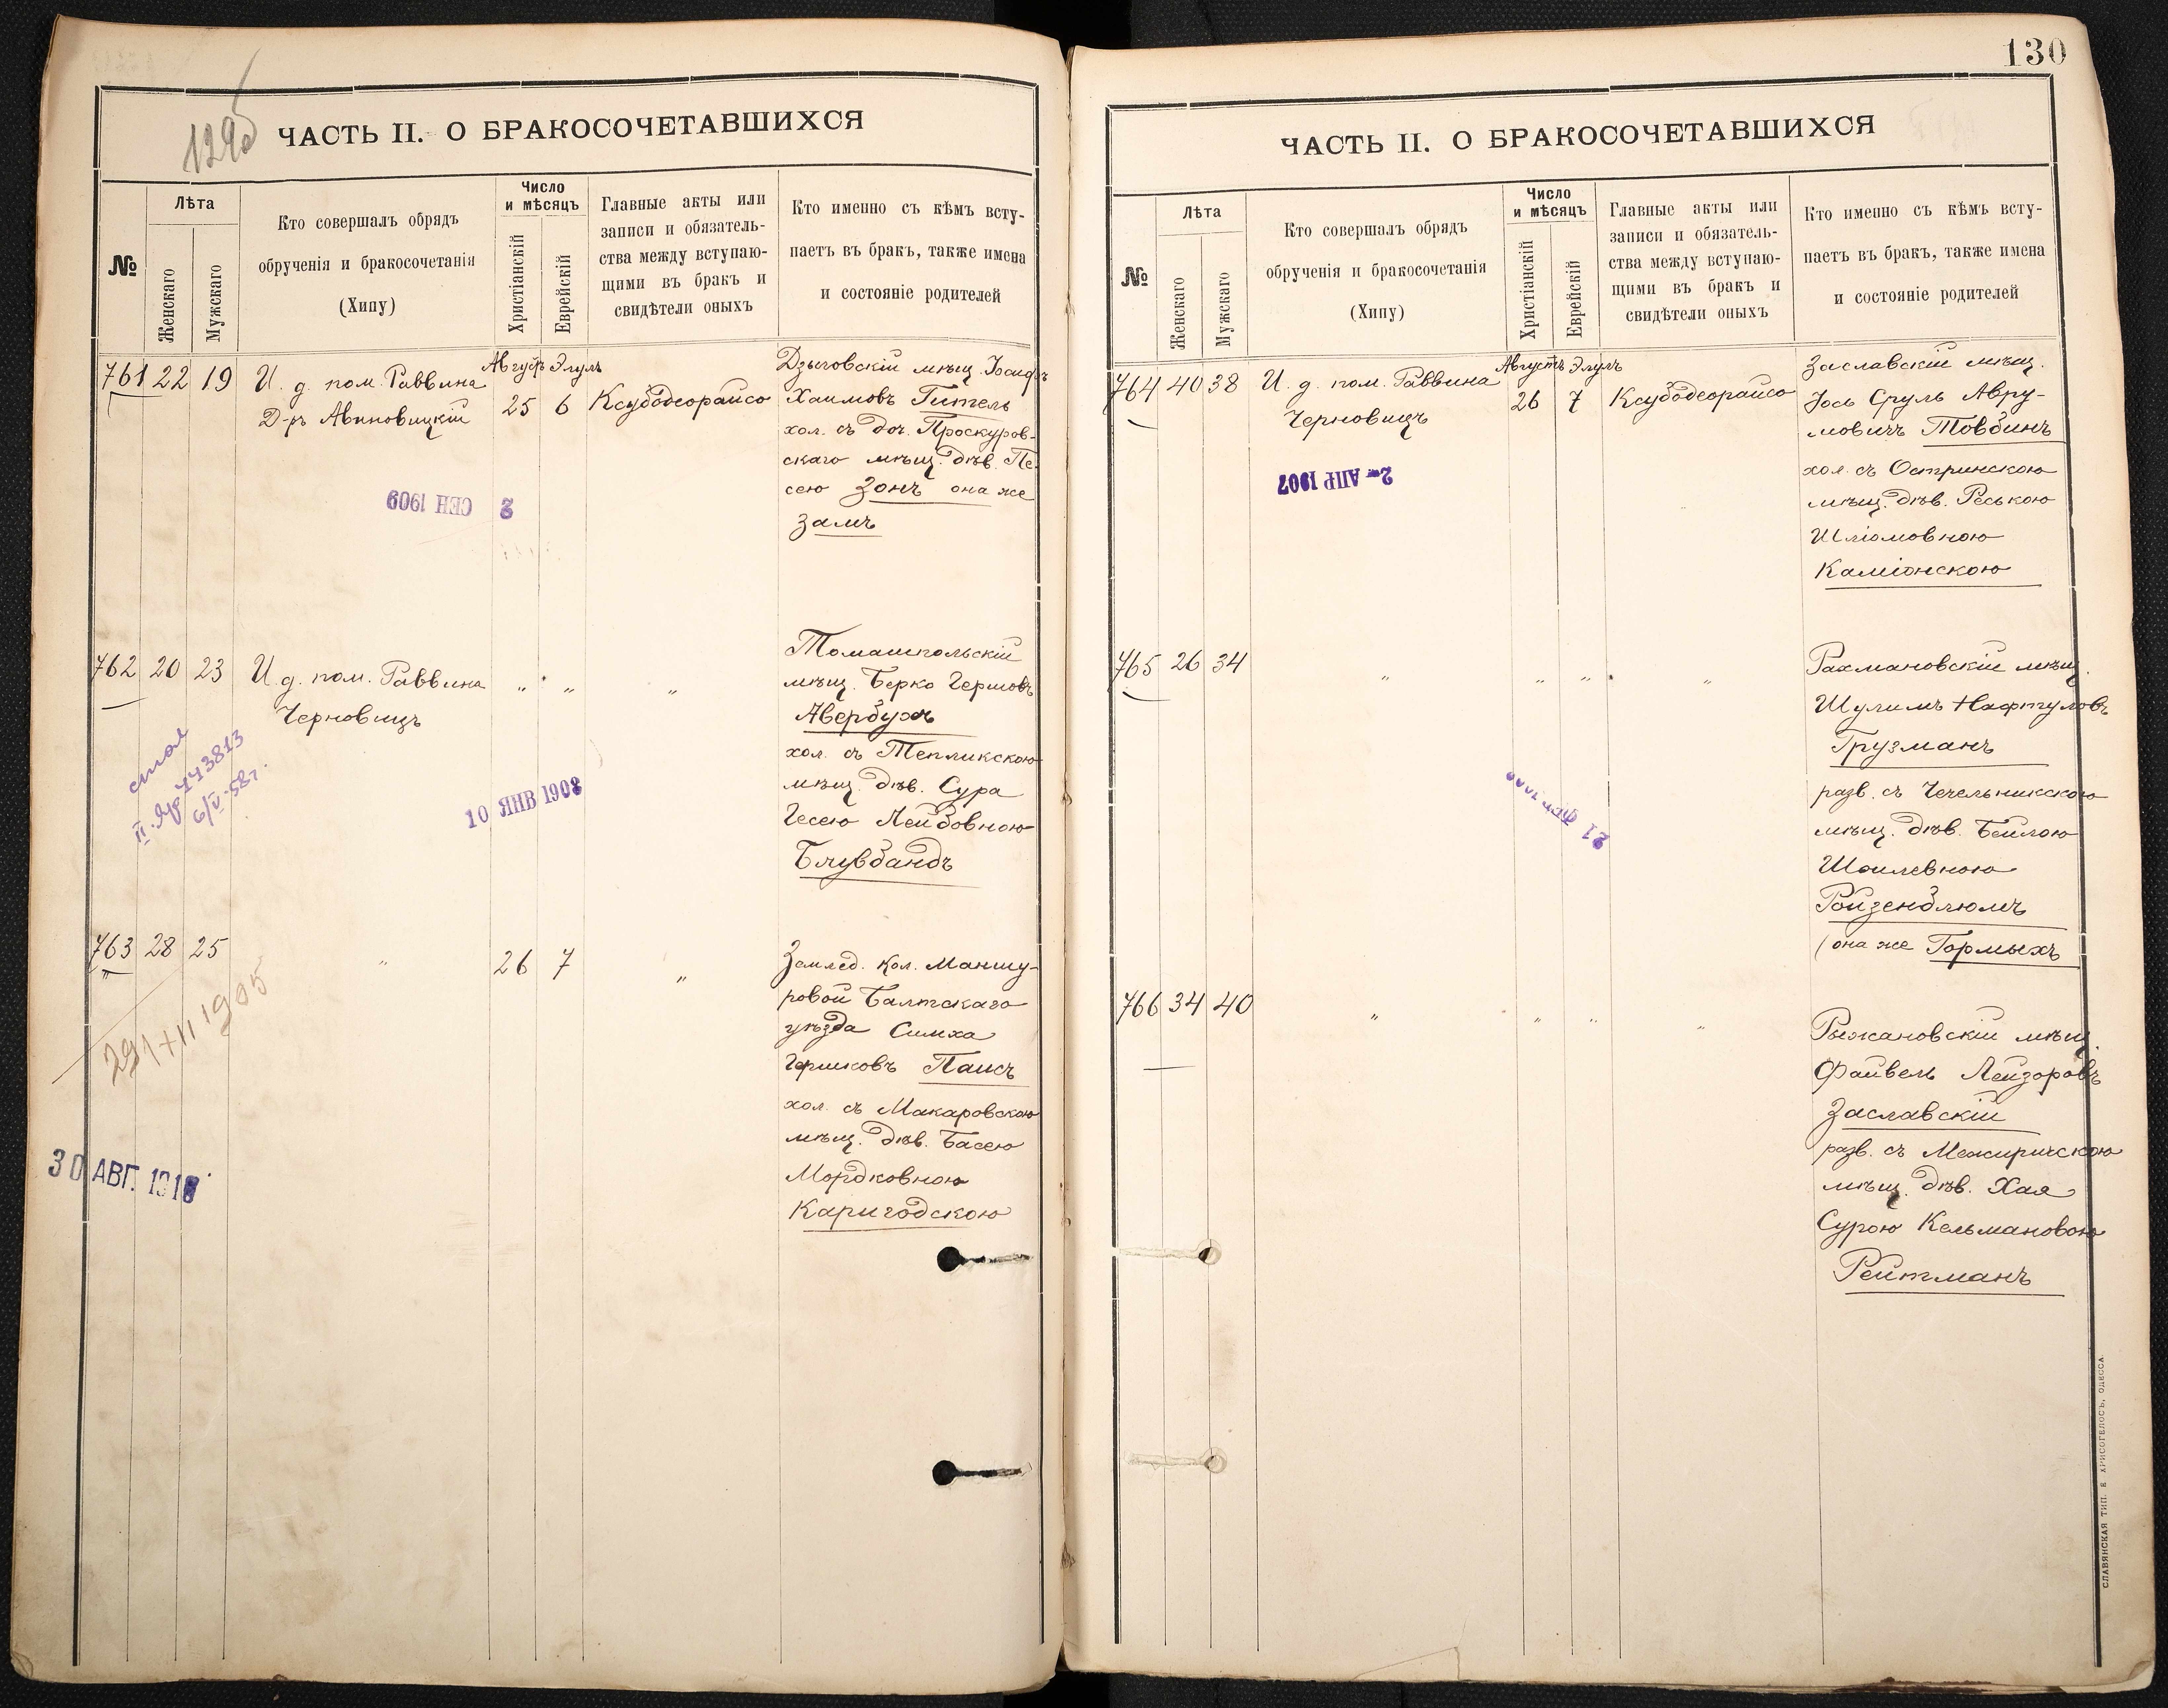 129об
ЧАСТЬ II. О БРАКОСОЧЕТАВШИХСЯ
№
Лѣта
Женскаго
Мужскаго
Кто совершалъ обрядъ
обрученія и бракосочетанія
(Хипу)
Число
и мѣсяцъ
Христіанскій
Еврейскій
Главные акты или
записи и обязатель-
ства между вступаю-
щими въ бракъ и
свидѣтели оныхъ
Кто именно съ кѣмъ всту-
паетъ въ бракъ, также имена
и состояніе родителей
761 22 19
И. д. пом. Раввина
Д-ръ Авиновицкій
Августъ Элулъ
25 6
Ксубодеорайсо
Дзыговскій мѣщ. Іосифъ
Хаимовъ Гительь
хол. съ доч. Проскуров-
скаго мѣщ. дѣв. Пе-
сею Зонъ она же
Замъ
2 СЕН 1909
762 20 23
И. д. пом. Раввина
Черновицъ
„ „
„
Томашпольскій
мѣщ. Берко Гершовъ
Авербухъ
хол. съ Тепликскою
мѣщ. дѣв. Сура
Гесею Лейбовною
Блувбандъ
443813
6/V-58г.
10 ЯНВ 1908
763 28 25
„
26 7
„
Землед. Кол. Маншу-
ровой Балтскаго
уѣзда Симха
Гершковъ Паисъ
хол. съ Макаровскою
мѣщ. дѣв. Басею
Мордковною
Каригодскою
1905
30 АВГ. 191
130
ЧАСТЬ II. О БРАКОСОЧЕТАВШИХСЯ
№
Лѣта
Женскаго
Мужскаго
Кто совершалъ обрядъ
обрученія и бракосочетанія
(Хипу)
Число
и мѣсяцъ
Христіанскій
Еврейскій
Главные акты или
записи и обязатель-
ства между вступаю-
щими въ бракъ и
свидѣтели оныхъ
Кто именно съ кѣмъ всту-
паетъ въ бракъ, также имена
и состояніе родителей
764 40 38
И. д. пом. Раввина
Черновицъ
Августъ Элулъ
26 7
Ксубодеорайсо
Заславскій мѣщ.
Іось Сруль Авру-
мовичъ Товбинъ
хол. съ Остринскою
мѣщ. дѣв. Реською
Шліомовною
Каміонскою
2- АПР 1907
765 26 34
„
„ „
„
Рахмановскій мѣщ.
Шулимъ Нафтуловъ
Грузманъ
разв. съ Чечельникскою
мѣщ. дѣв. Бейлою
Шоилевною
Ройзенблюмъ
(она же Гормыхъ
21
766 34 40
„
„ „
„
Рыжановскій мѣщ.
Файвель Лейзоровъ
Заславскій
разв. съ Межиричскою
мѣщ. дѣв. Хая
Сурою Кельмановою
Рейтманъ
СЛАВЯНСКАЯ ТИП. Е ХРИСОГЕЛОСЪ, ОДЕССА.